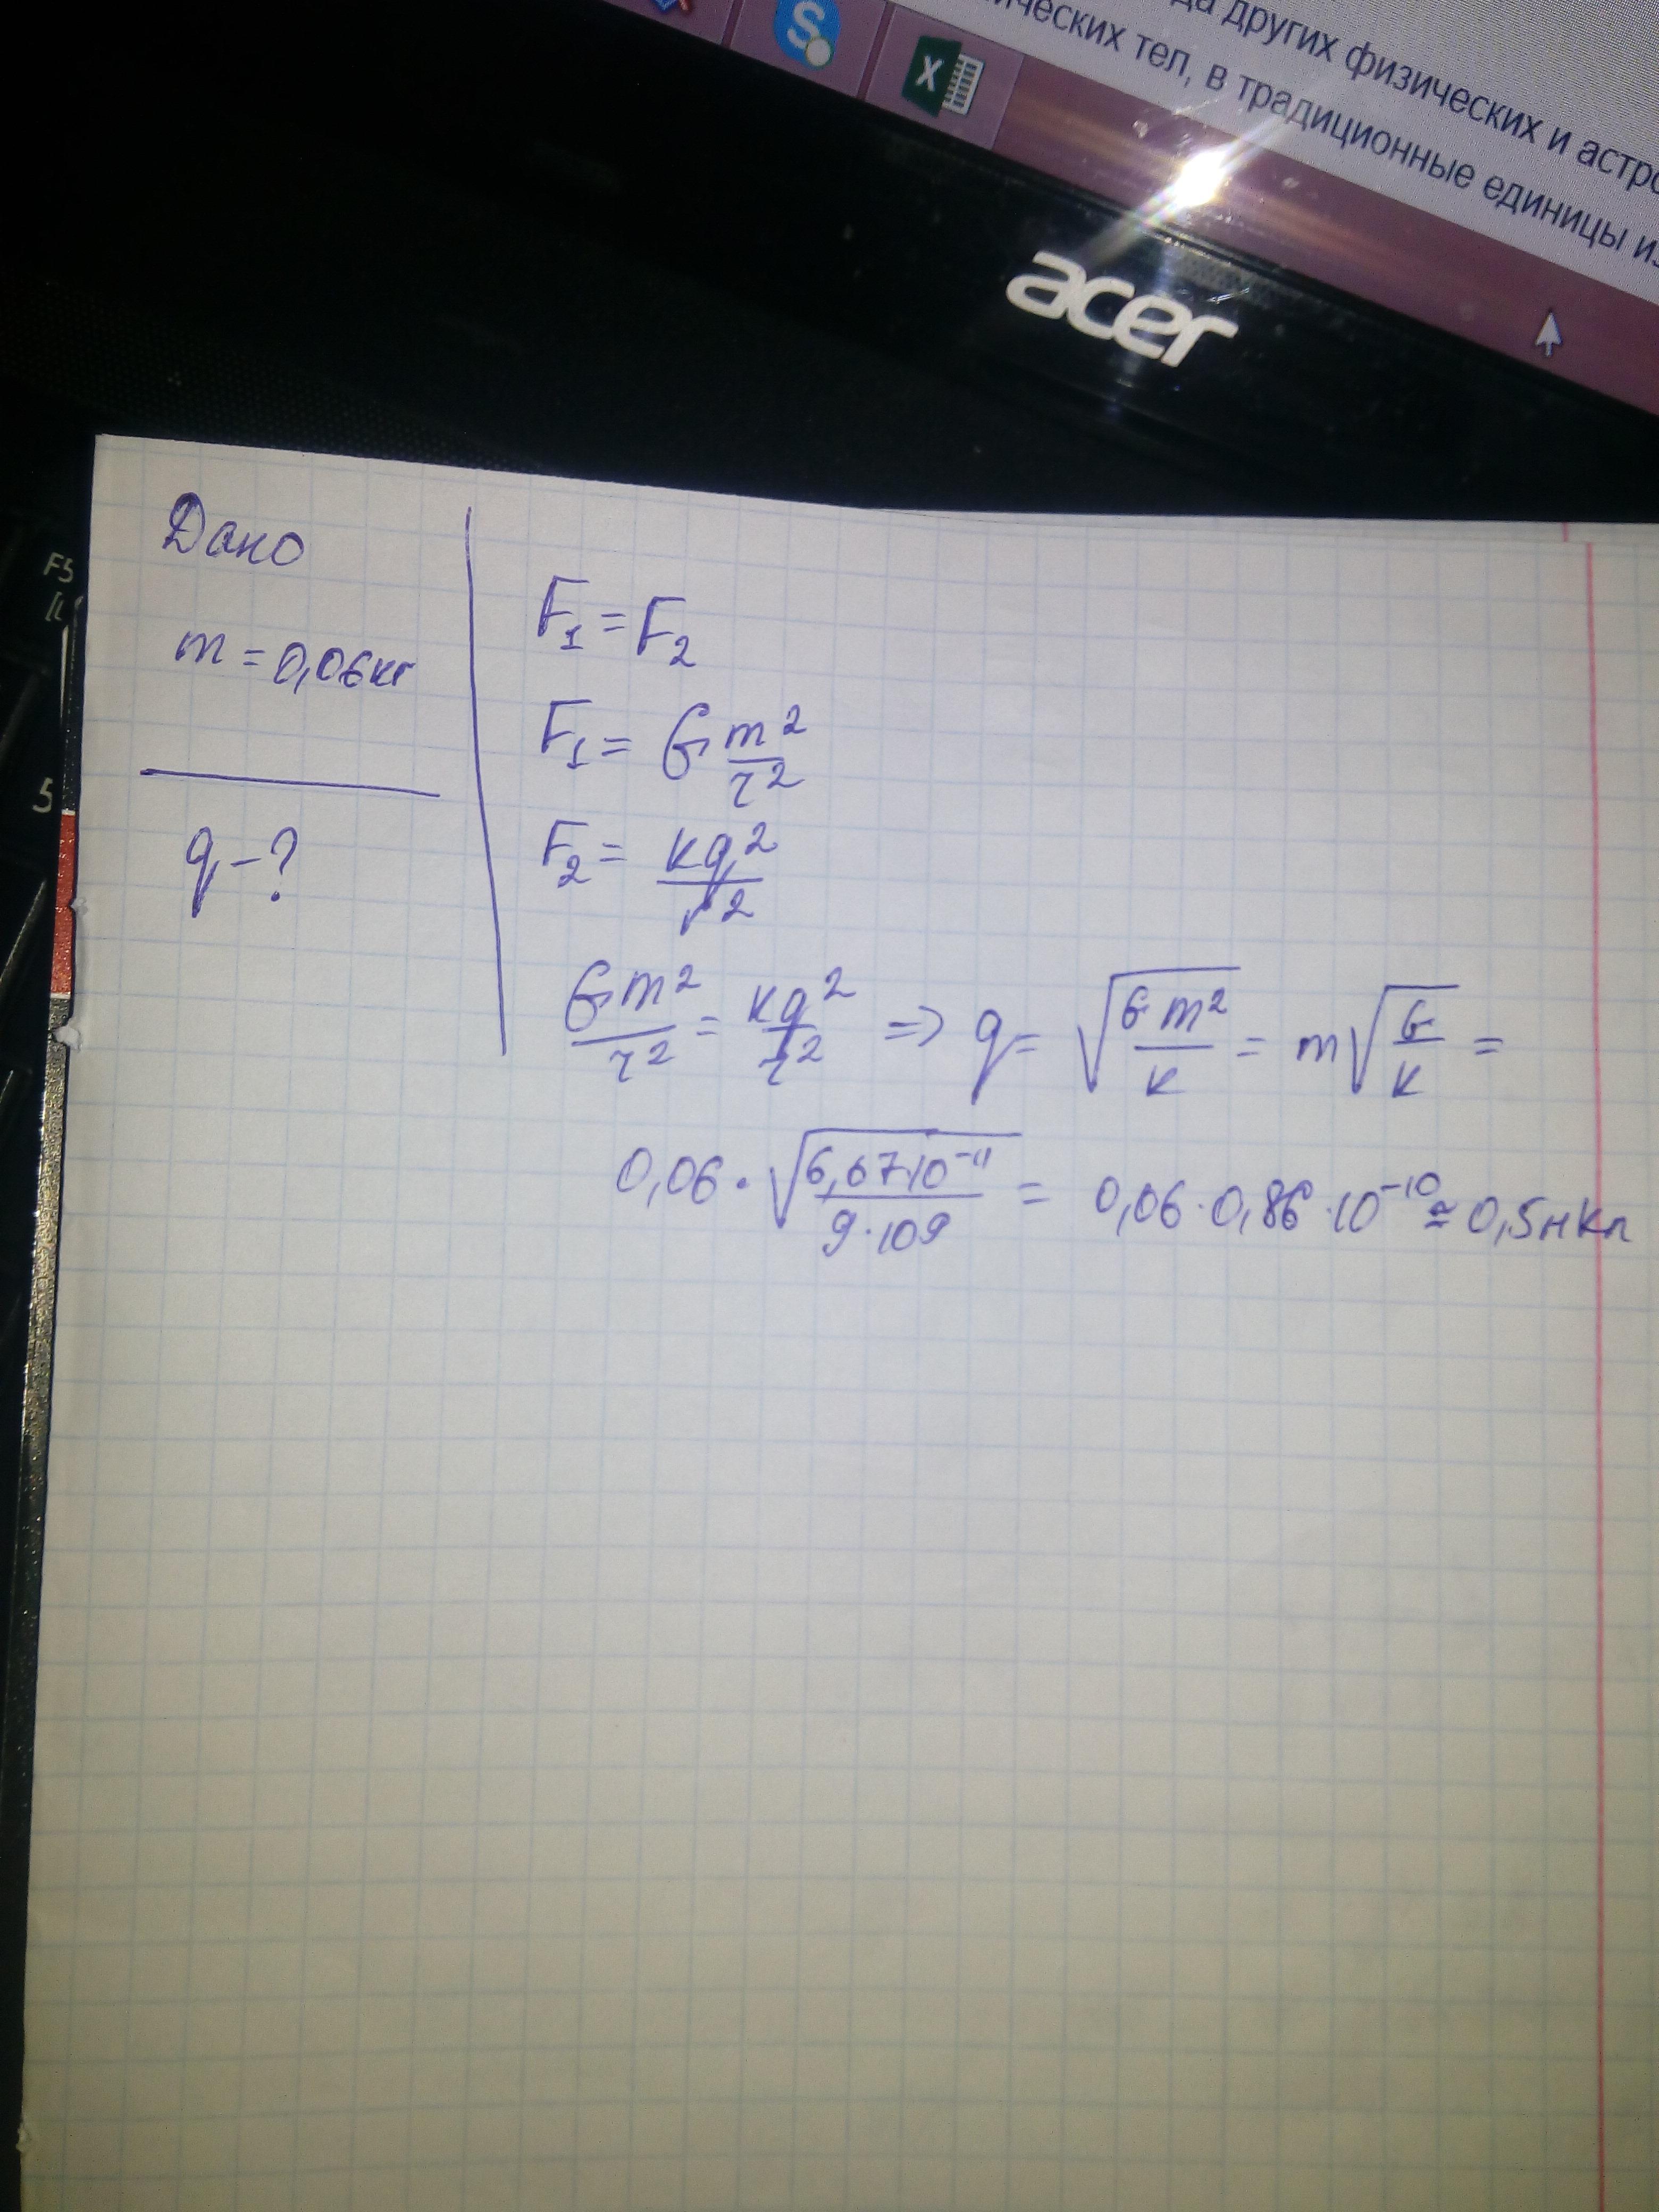 да других физических и астро
ических тел, в традиционные единицы из
S
X
acer
F5
5
Дано
m = 0,06кг
q - ?
F₁ = F₂
F₁ = G m²/r²
F₂ = kq²/r²
Gm²/r² = kq²/r² => q = √(Gm²/k) = m√(G/k) =
0,06 · √(6,67·10⁻¹¹/9·10⁹) = 0,06 · 0,86 · 10⁻¹⁰ ≅ 0,5нКл